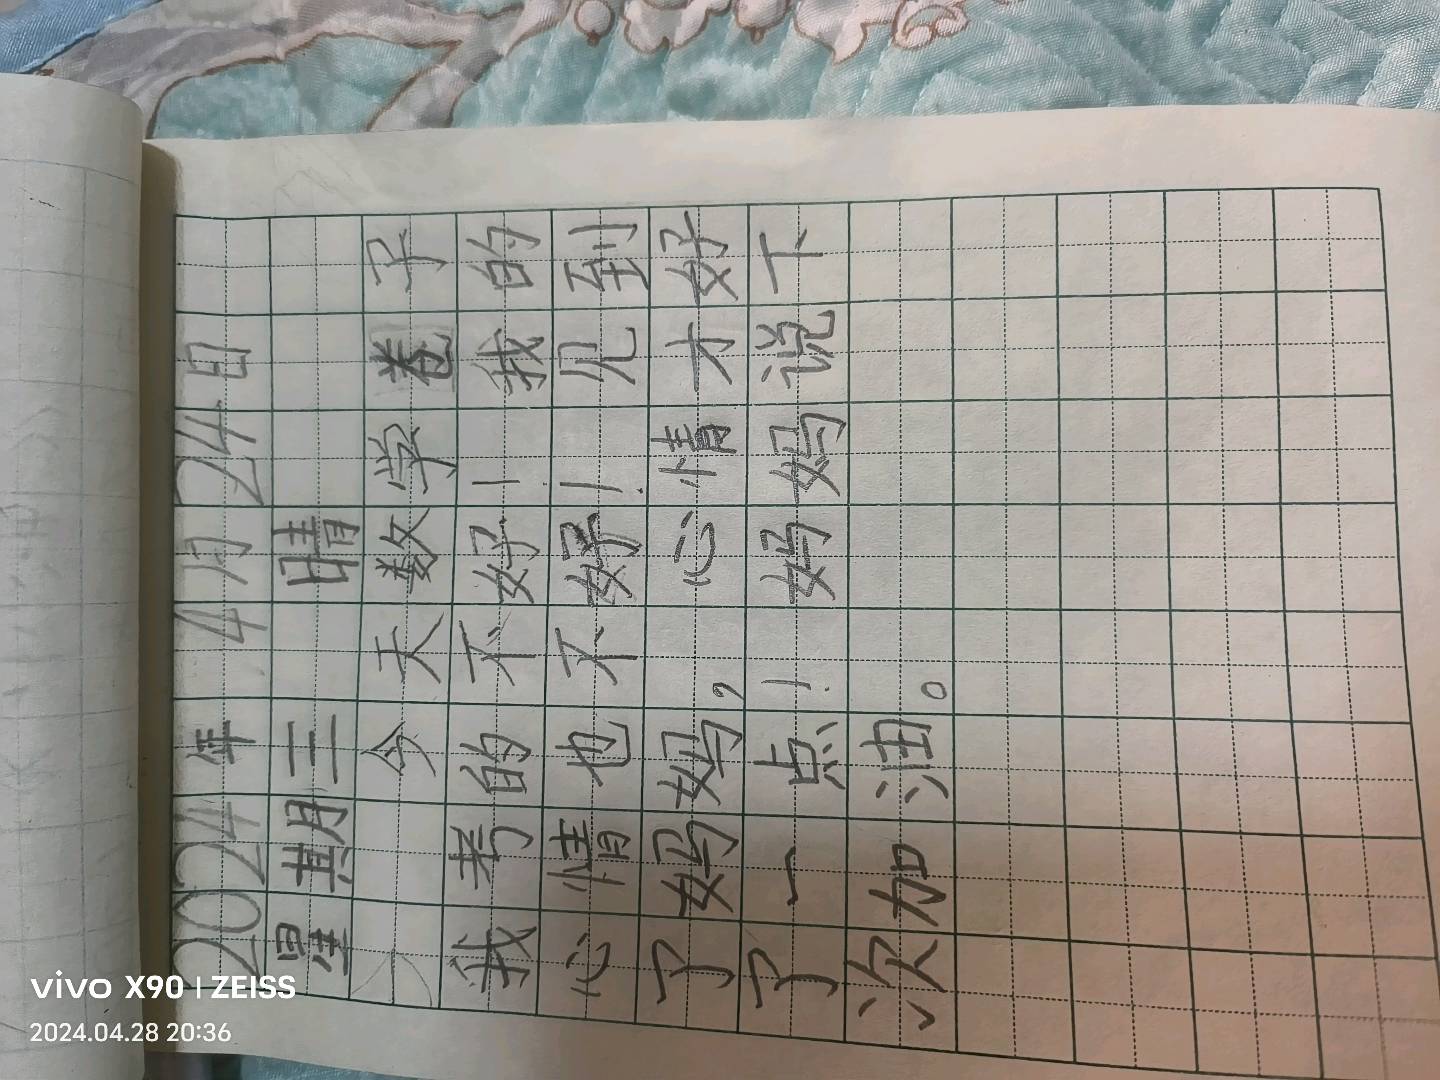 2024年4月24日
星期三 晴
今天数学卷子
我考的不好!我的
心情也不好!见到
了妈妈,心情才好
了一点!妈妈说下
次加油。
vivo X90 | ZEISS
2024.04.28 20:36